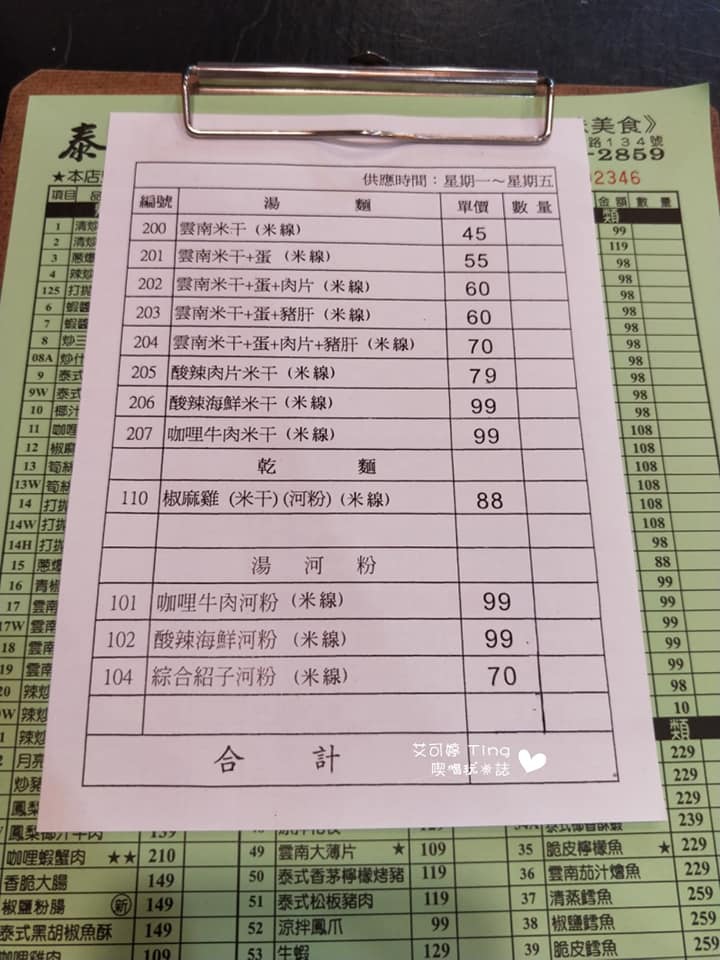 泰
美食》
路134號
-2859
★本店
2346
項目 品
金額 數量
類
供應時間：星期一～星期五
編號 湯麵 單價 數量
200 雲南米干（米線） 45
201 雲南米干+蛋（米線） 55
202 雲南米干+蛋+肉片（米線） 60
203 雲南米干+蛋+豬肝（米線） 60
204 雲南米干+蛋+肉片+豬肝（米線） 70
205 酸辣肉片米干（米線） 79
206 酸辣海鮮米干（米線） 99
207 咖哩牛肉米干（米線） 99
乾麵
110 椒麻雞（米干）（河粉）（米線） 88
湯河粉
101 咖哩牛肉河粉（米線） 99
102 酸辣海鮮河粉（米線） 99
104 綜合紹子河粉（米線） 70
合計
艾可婷 Ting
喫喝玩樂誌
1 清炒 99
2 清炒 119
3 蔥爆 98
4 辣炒 98
125 打拋 98
6 蝦醬 98
7 蝦醬 98
8 炒三 98
08A 炒什 98
9 泰式 98
9W 泰式 98
10 椰汁 98
11 咖哩 108
12 椒麻 108
13 筍絲 108
13W 筍絲 108
14 打拋 108
14W 打拋 108
14H 打拋 98
15 蔥爆 88
16 青椒 99
17 雲南 99
17W 雲南 99
18 雲南 99
19 雲南 99
20 辣炒 98
辣炒 10
辣炒 類
月亮 229
炒豬 229
鳳梨 229
鳳梨椰汁牛肉 159 239
咖哩蝦蟹肉 ★★ 210 49 雲南大薄片 ★ 109 35 脆皮檸檬魚 ★ 229
香脆大腸 149 50 泰式香茅檸檬烤豬 119 36 雲南茄汁燴魚 229
椒鹽粉腸 新 149 51 泰式松板豬肉 119 37 清蒸鱈魚 259
泰式黑胡椒魚酥 149 52 涼拌鳳爪 99 38 椒鹽鱈魚 259
咖哩雞肉 109 53 生蝦 129 39 脆皮鱈魚 259